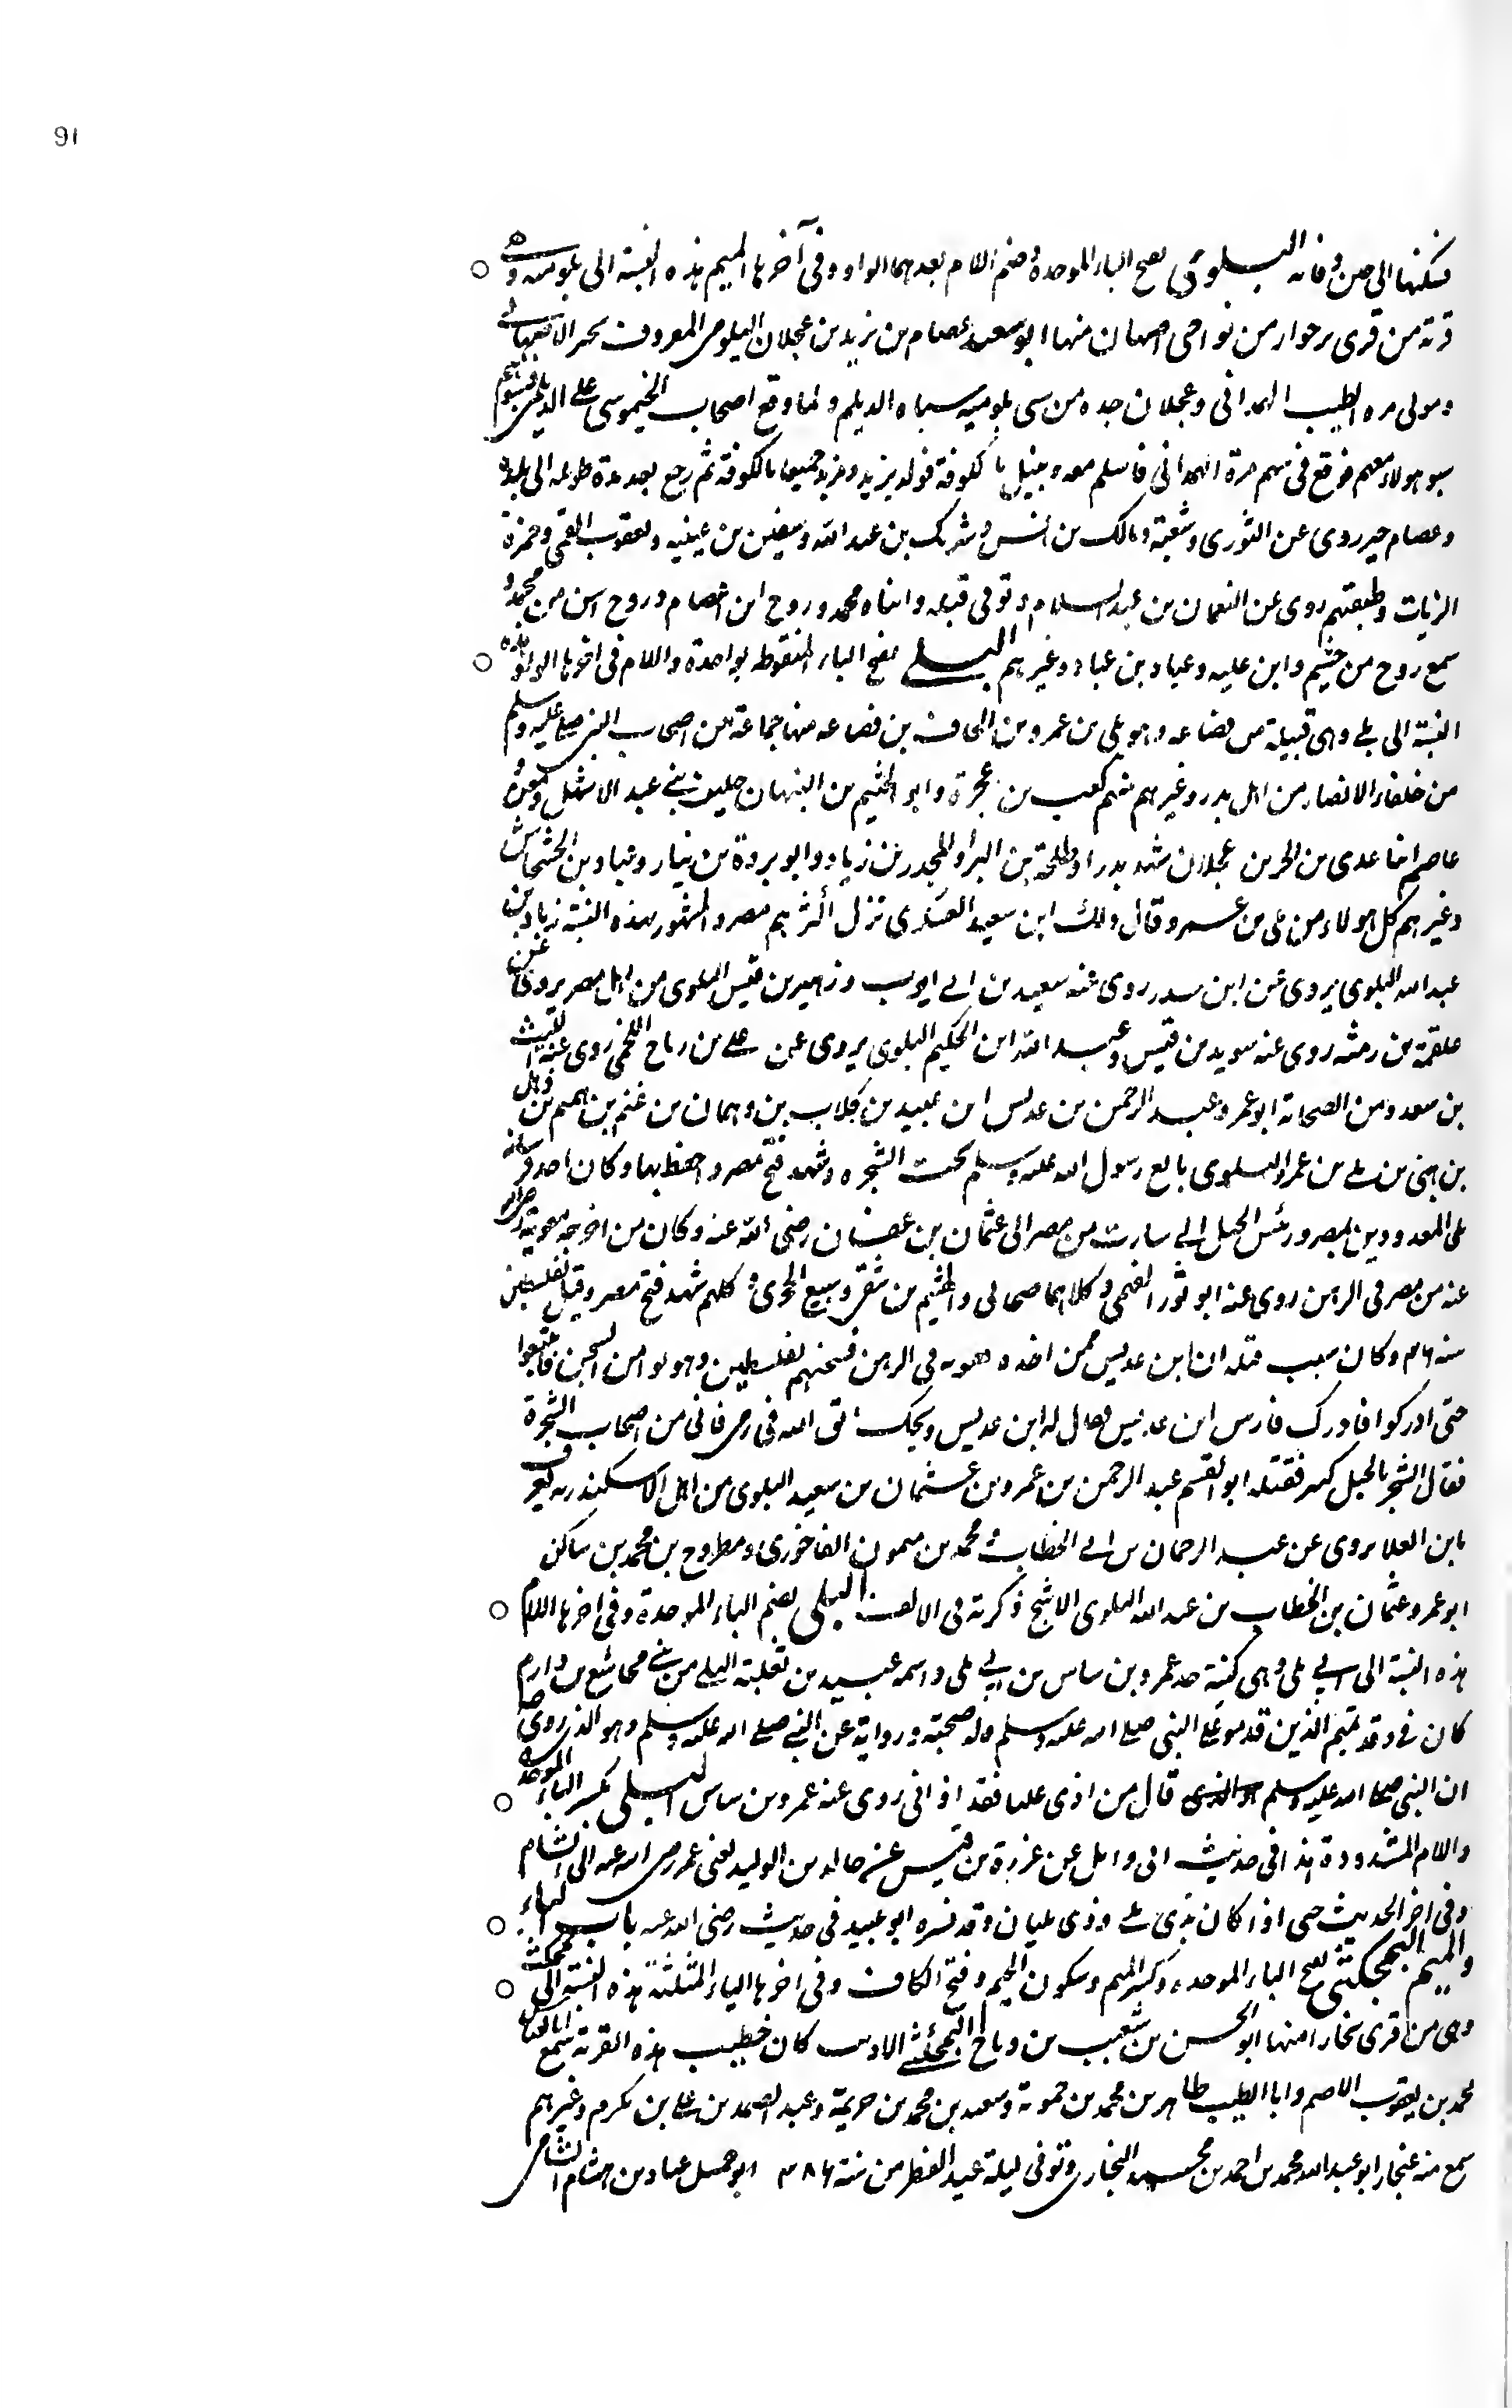 91
فسكنها الى حين وفاته البلومي بفتح الباء الموحدة وضم اللام بعدهما الواو وفي آخرها الميم هذه النسبة الى بلومية وهي
قرية من قرى برخوار من نواحي اصبهان منها ابو سعيد عصام بن يزيد بن عجلان البلومي المعروف بجبر الاصبهاني
مولى مرة الطيب الهمداني وعجلان جده من سبي بلومية سباه الديلم ولما وقع اصحاب ابي موسى على الديلم
سبو هولاء معهم فوقع في سهم مرة الهمداني فاسلم معه بالكوفة فولد يزيد جميعا بالكوفة ثم رجع بعد مدة طويلة الى بلده
وعصام جبر روى عن الثوري وشعبة ومالك بن انس وشريك بن عبد الله وسفين بن عيينه ويعقوب القمي وحمزة
الزيات وطبقتهم روى عن النعمان بن عبد السلام وتوفي قبله وابناه محمد وروح ابن اعصام وروح اسن من محمد
سمع روح من هشيم وابن عليه وعباد بن عباد وغيرهم البلوي بفتح الباء المنقوطه بواحدة واللام في اخرها الواو هذه
النسبة الى بلي وهي قبيلة من قضاعه وهو بلي بن عمرو بن الحاف بن قضاعه منها جماعة من اصحاب النبي صلى عليه وسلم
من خلفاء الانصار من اهل بدر وغيرهم منهم كعب بن عجرة وابو الهثيم بن التيهان حليف بني عبد الاشهل ومعن و
عاصم اخا عدي من الحر بن عجلان شهد بدرا وطلحة بن البرا والمجدر بن زياد وابو بردة بن نيار وعباد بن الخشخاش
وغيرهم كل هولاء من بلي بن عمرو قال ذلك ابن سعيد العسكري نزل اكثرهم مصر والمشهور بهذه النسبة زياد بن
عبد الله البلوي يروي عن ابن سندر روى عنه سعيد بن ابي ايوب وزهير بن قيس البلوي من اهل مصر يروي عن
علقمة بن رمثه روى عنه سويد بن قيس وعبد الله ابن الحكيم البلوي يروي عن علي بن رباح اللخمي روى عنه الليث
بن سعد ومن الصحابة ابو عمرو عبد الرحمن بن عديس ابن عبيد بن كلاب بن دهمان بن غنم بن هميم بن ذهل
بن هني بن بلي بن عمرو البلوي بايع رسول الله عليه وسلم تحت الشجره وشهد فتح مصر واختط بها وكان احد فرسان
بلي المعدودين بمصر ورئيس الخيل التي سارت من مصر الى عثمان بن عفان رضي الله عنه وكان من اخرجه معوية رضي الله
عنه من مصر في الرهن روى عنه ابو ثور الفهمي وكلاهما صحابي والهثيم بن شفي وسبيع الحجري كلهم شهد فتح مصر وقتل بفلسطين
سنه ٣٦ وكان سبب قتله ان ابن عديس ممن اخذه معويه في الرهن فسجنهم بفلسطين وهربوا من السجن فاتبعوا
حتى ادركوا فادرك فارس ابن عديس فقال له ابن عديس ويحك اتق الله في دمي فاني من اصحاب الشجرة
فقال الشجر بالجبل كثير فقتله ابو القسم عبد الرحمن بن عمرو بن عثمان بن سعيد البلوي من اهل الاسكندريه يعرف
بابن العلا يروي عن عبد الرحمان بن ابي الخطاب ومحمد بن ميمون الفاخوري ومطروح بن محمد بن شاكن
ابو عمرو عثمان بن الخطاب بن عبد الله البلوي الاشج ذكرته في الالف البلي بضم الباء الموحدة وفي اخرها اللام
هذه النسبة الى ابي بلي وهي كنية جد عمرو بن شاس بن ابي بلي واسمه عبيد بن ثعلبة البلي من بني مجاشع بن دارم
كان في وفد تميم الذين قدموا على النبي صلى الله عليه وسلم وله صحبة ورواية عن النبي صلى الله عليه وسلم وهو الذي روى
ان النبي صلى الله عليه وسلم قال من اذى عليا فقد اذاني روى عنه عمرو بن شاس البلي بكسر الباء الموحده
واللام المشددة هذا في حديث ابي وايل عن عزرة بن قيس عن خالد بن الوليد لعني عمر رضي الله عنه الى الشام
وفي اخر الحديث حتى اذا كان بذي بلي وذي بليان وقد فسره ابو عبيد في حديث رضي الله عنه باب الباء
والميم البمجكثي بفتح الباء الموحده وكسر الميم وسكون الجيم وفتح الكاف وفي اخرها الثاء المثلثة هذه النسبة الى بمجكث
وهي من قرى بخارا منها ابو الحسن بن شعيب بن البمجكثي كان خطيب هذه القرية سمع ابا العباس
محمد بن يعقوب الاصم وابا الطيب طاهر بن محمد بن حمويه وسعيد بن محمد بن خزيمة وعبد الصمد بن علي بن مكرم وغيرهم
سمع منه غنجار ابو عبد الله محمد بن احمد بن محمد البخاري وتوفي ليلة عيد الفطر من سنة ٣٨٦ ابو سهل عباد بن هشام الشامي